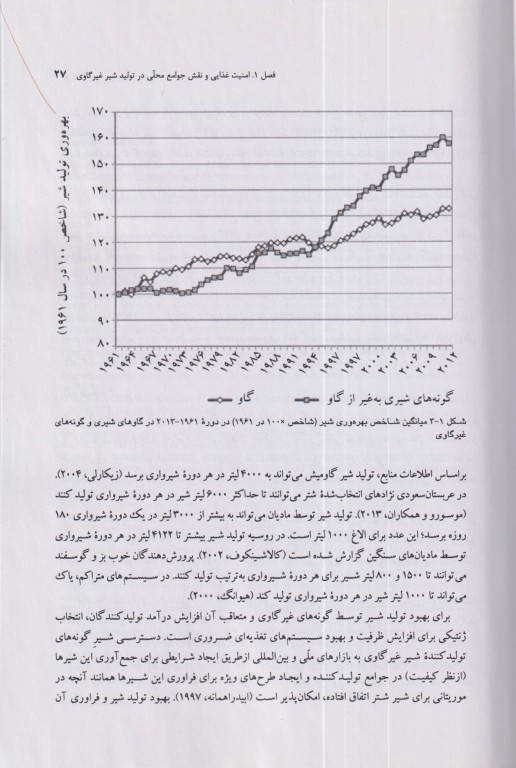 فصل ۱. امنیت غذایی و نقش جوامع محلّی در تولید شیر غیرگاوی ۲۷
بهره‌وری تولید شیر (شاخص ۱۰۰ در سال ۱۹۶۱)
۱۷۰
۱۶۰
۱۵۰
۱۴۰
۱۳۰
۱۲۰
۱۱۰
۱۰۰
۹۰
۸۰
۱۹۶۱ ۱۹۶۴ ۱۹۶۷ ۱۹۷۰ ۱۹۷۳ ۱۹۷۶ ۱۹۷۹ ۱۹۸۲ ۱۹۸۵ ۱۹۸۸ ۱۹۹۱ ۱۹۹۴ ۱۹۹۷ ۱۹۹۷ ۲۰۰۰ ۲۰۰۳ ۲۰۰۶ ۲۰۰۹ ۲۰۱۲
گونه‌های شیری به‌غیر از گاو گاو
شکل ۱-۳ میانگین شاخص بهره‌وری شیر (شاخص ×۱۰۰ در ۱۹۶۱) در دورهٔ ۱۹۶۱-۲۰۱۳ در گاوهای شیری و گونه‌های
غیرگاوی
براساس اطلاعات منابع، تولید شیر گاومیش می‌تواند به ۴۰۰۰ لیتر در هر دورهٔ شیرواری برسد (زیکارلی، ۲۰۰۴).
در عربستان‌سعودی نژادهای انتخاب‌شدهٔ شتر می‌توانند تا حداکثر ۶۰۰۰ لیتر شیر در هر دورهٔ شیرواری تولید کنند
(موسورو و همکاران، ۲۰۱۳). تولید شیر توسط مادیان می‌تواند به بیشتر از ۳۰۰۰ لیتر در یک دورهٔ شیرواری ۱۸۰
روزه برسد؛ این عدد برای الاغ ۱۰۰۰ لیتر است. در روسیه تولید شیر بیشتر تا ۴۱۲۲ لیتر در هر دورهٔ شیرواری
توسط مادیان‌های سنگین گزارش شده است (کالاشینکوف، ۲۰۰۲). پرورش‌دهندگان خوب بز و گوسفند
می‌توانند تا ۱۵۰۰ و ۸۰۰ لیتر شیر برای هر دورهٔ شیرواری به‌ترتیب تولید کنند. در سیستم‌های متراکم، یاک
می‌تواند تا ۱۰۰۰ لیتر شیر در هر دورهٔ شیرواری تولید کند (هیوانگ، ۲۰۰۰).
برای بهبود تولید شیر توسط گونه‌های غیرگاوی و متعاقب آن افزایش درآمد تولیدکنندگان، انتخاب
ژنتیکی برای افزایش ظرفیت و بهبود سیستم‌های تغذیه‌ای ضروری است. دسترسی شیرِ گونه‌های
تولیدکنندهٔ شیر غیرگاوی به بازارهای ملّی و بین‌المللی ازطریق ایجاد شرایطی برای جمع‌آوری این شیرها
(ازنظر کیفیت) در جوامع تولیدکننده و ایجاد طرح‌های ویژه برای فراوری این شیرها همانند آنچه در
موریتانی برای شیر شتر اتفاق افتاده، امکان‌پذیر است (ابیدراهمانه، ۱۹۹۷). بهبود تولید شیر و فراوری آن